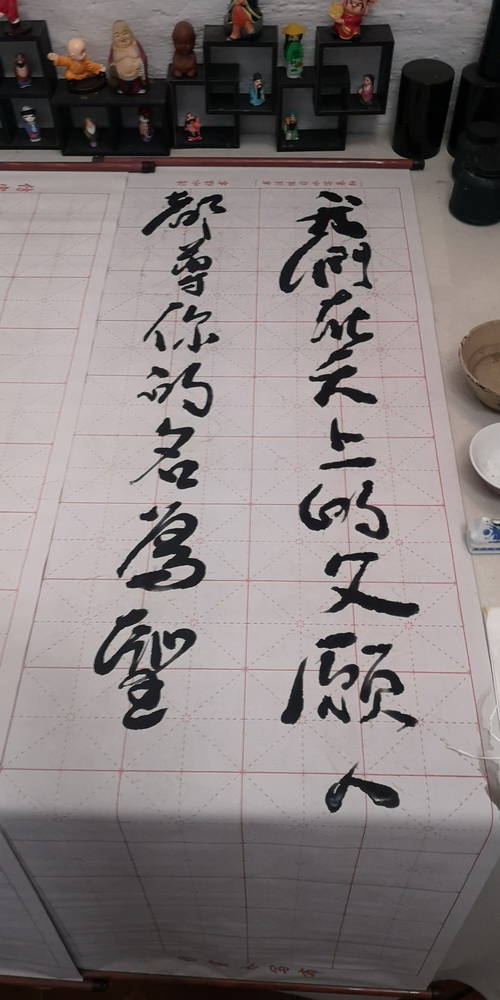 我們在天上的父願人
都尊你的名爲聖